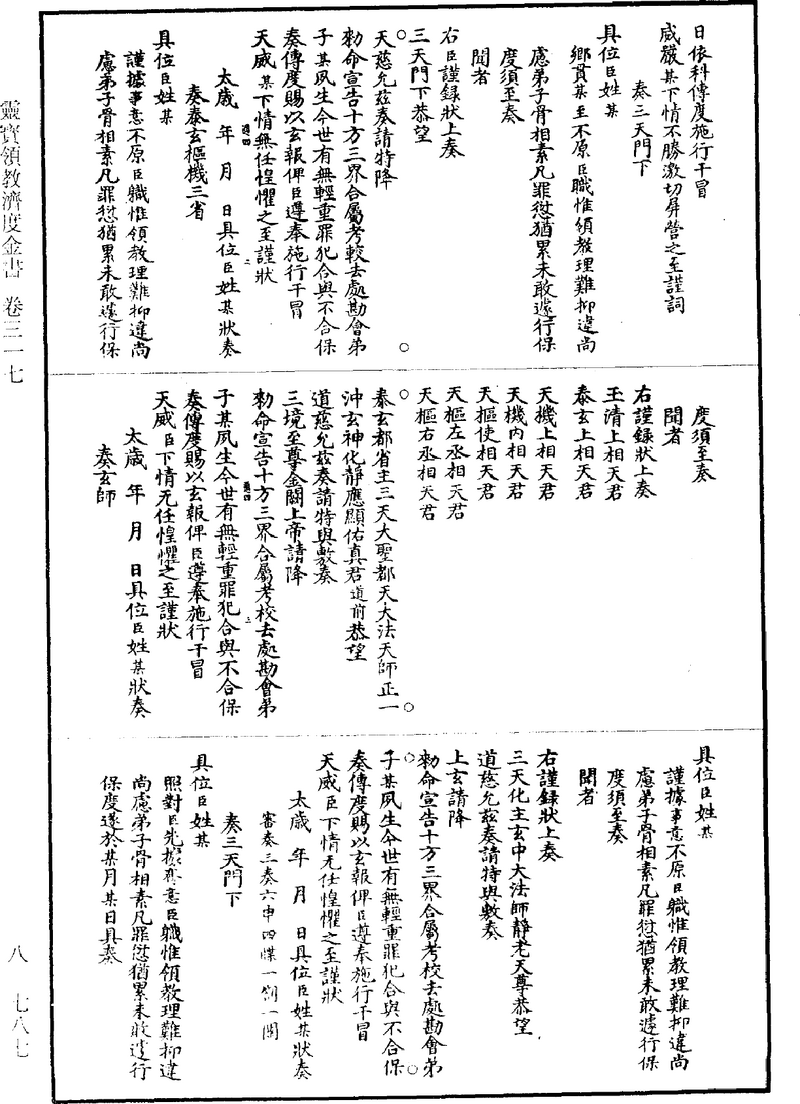 日依科傳度施行干冒
威嚴某下情不勝激切屏營之至謹詞
奏三天門下
具位臣姓某
鄉貫某至不原臣職惟領教理難抑違尚
慮弟子骨相素凡罪愆猶累未敢遽行保
度須至奏
聞者
右臣謹錄狀上奏
三天門下恭望
天慈允茲奏請特降
勑命宣告十方三界合屬考較去處勘會弟
子某夙生今世有無輕重罪犯合與不合保
奏傳度賜以玄報俾臣遵奉施行干冒
天威某下情無任惶懼之至謹狀
太歲 年 月 日具位臣姓某狀奏
奏泰玄樞機三省
具位臣姓某
謹據事意不原臣職惟領教理難抑違尚
慮弟子骨相素凡罪愆猶累未敢遽行保
度須至奏
聞者
右謹錄狀上奏
玉清上相天君
泰玄上相天君
天機上相天君
天機內相天君
天樞使相天君
天樞左丞相天君
天樞右丞相天君
泰玄都省主三天大聖都天大法天師正一
沖玄神化靜應顯佑真君道前恭望
道慈允茲奏請特與敷奏
三境至尊金闕上帝請降
勑命宣告十方三界合屬考校去處勘會弟
子某夙生今世有無輕重罪犯合與不合保
奏傳度賜以玄報俾臣遵奉施行干冒
天威臣下情无任惶懼之至謹狀
太歲 年 月 日具位臣姓某狀奏
奏玄師
具位臣姓某
謹據事意不原臣職惟領教理難抑違尚
慮弟子骨相素凡罪愆猶累未敢遽行保
度須至奏
聞者
右謹錄狀上奏
三天化主玄中大法師靜老天尊恭望
道慈允茲奏請特與敷奏
上玄請降
勑命宣告十方三界合屬考校去處勘會弟
子某夙生今世有無輕重罪犯合與不合保
奏傳度賜以玄報俾臣遵奉施行干冒
天威臣下情无任惶懼之至謹狀
太歲 年 月 日具位臣姓某狀奏
審奏三奏六申四牒一劄一關
奏三天門下
具位臣姓某
照對臣先據奏意臣職惟領教理難抑違
尚慮弟子骨相素凡罪愆猶累未敢遽行
保度遂於某月某日具奏
靈寶領教濟度金書 卷三一七
八 七八七